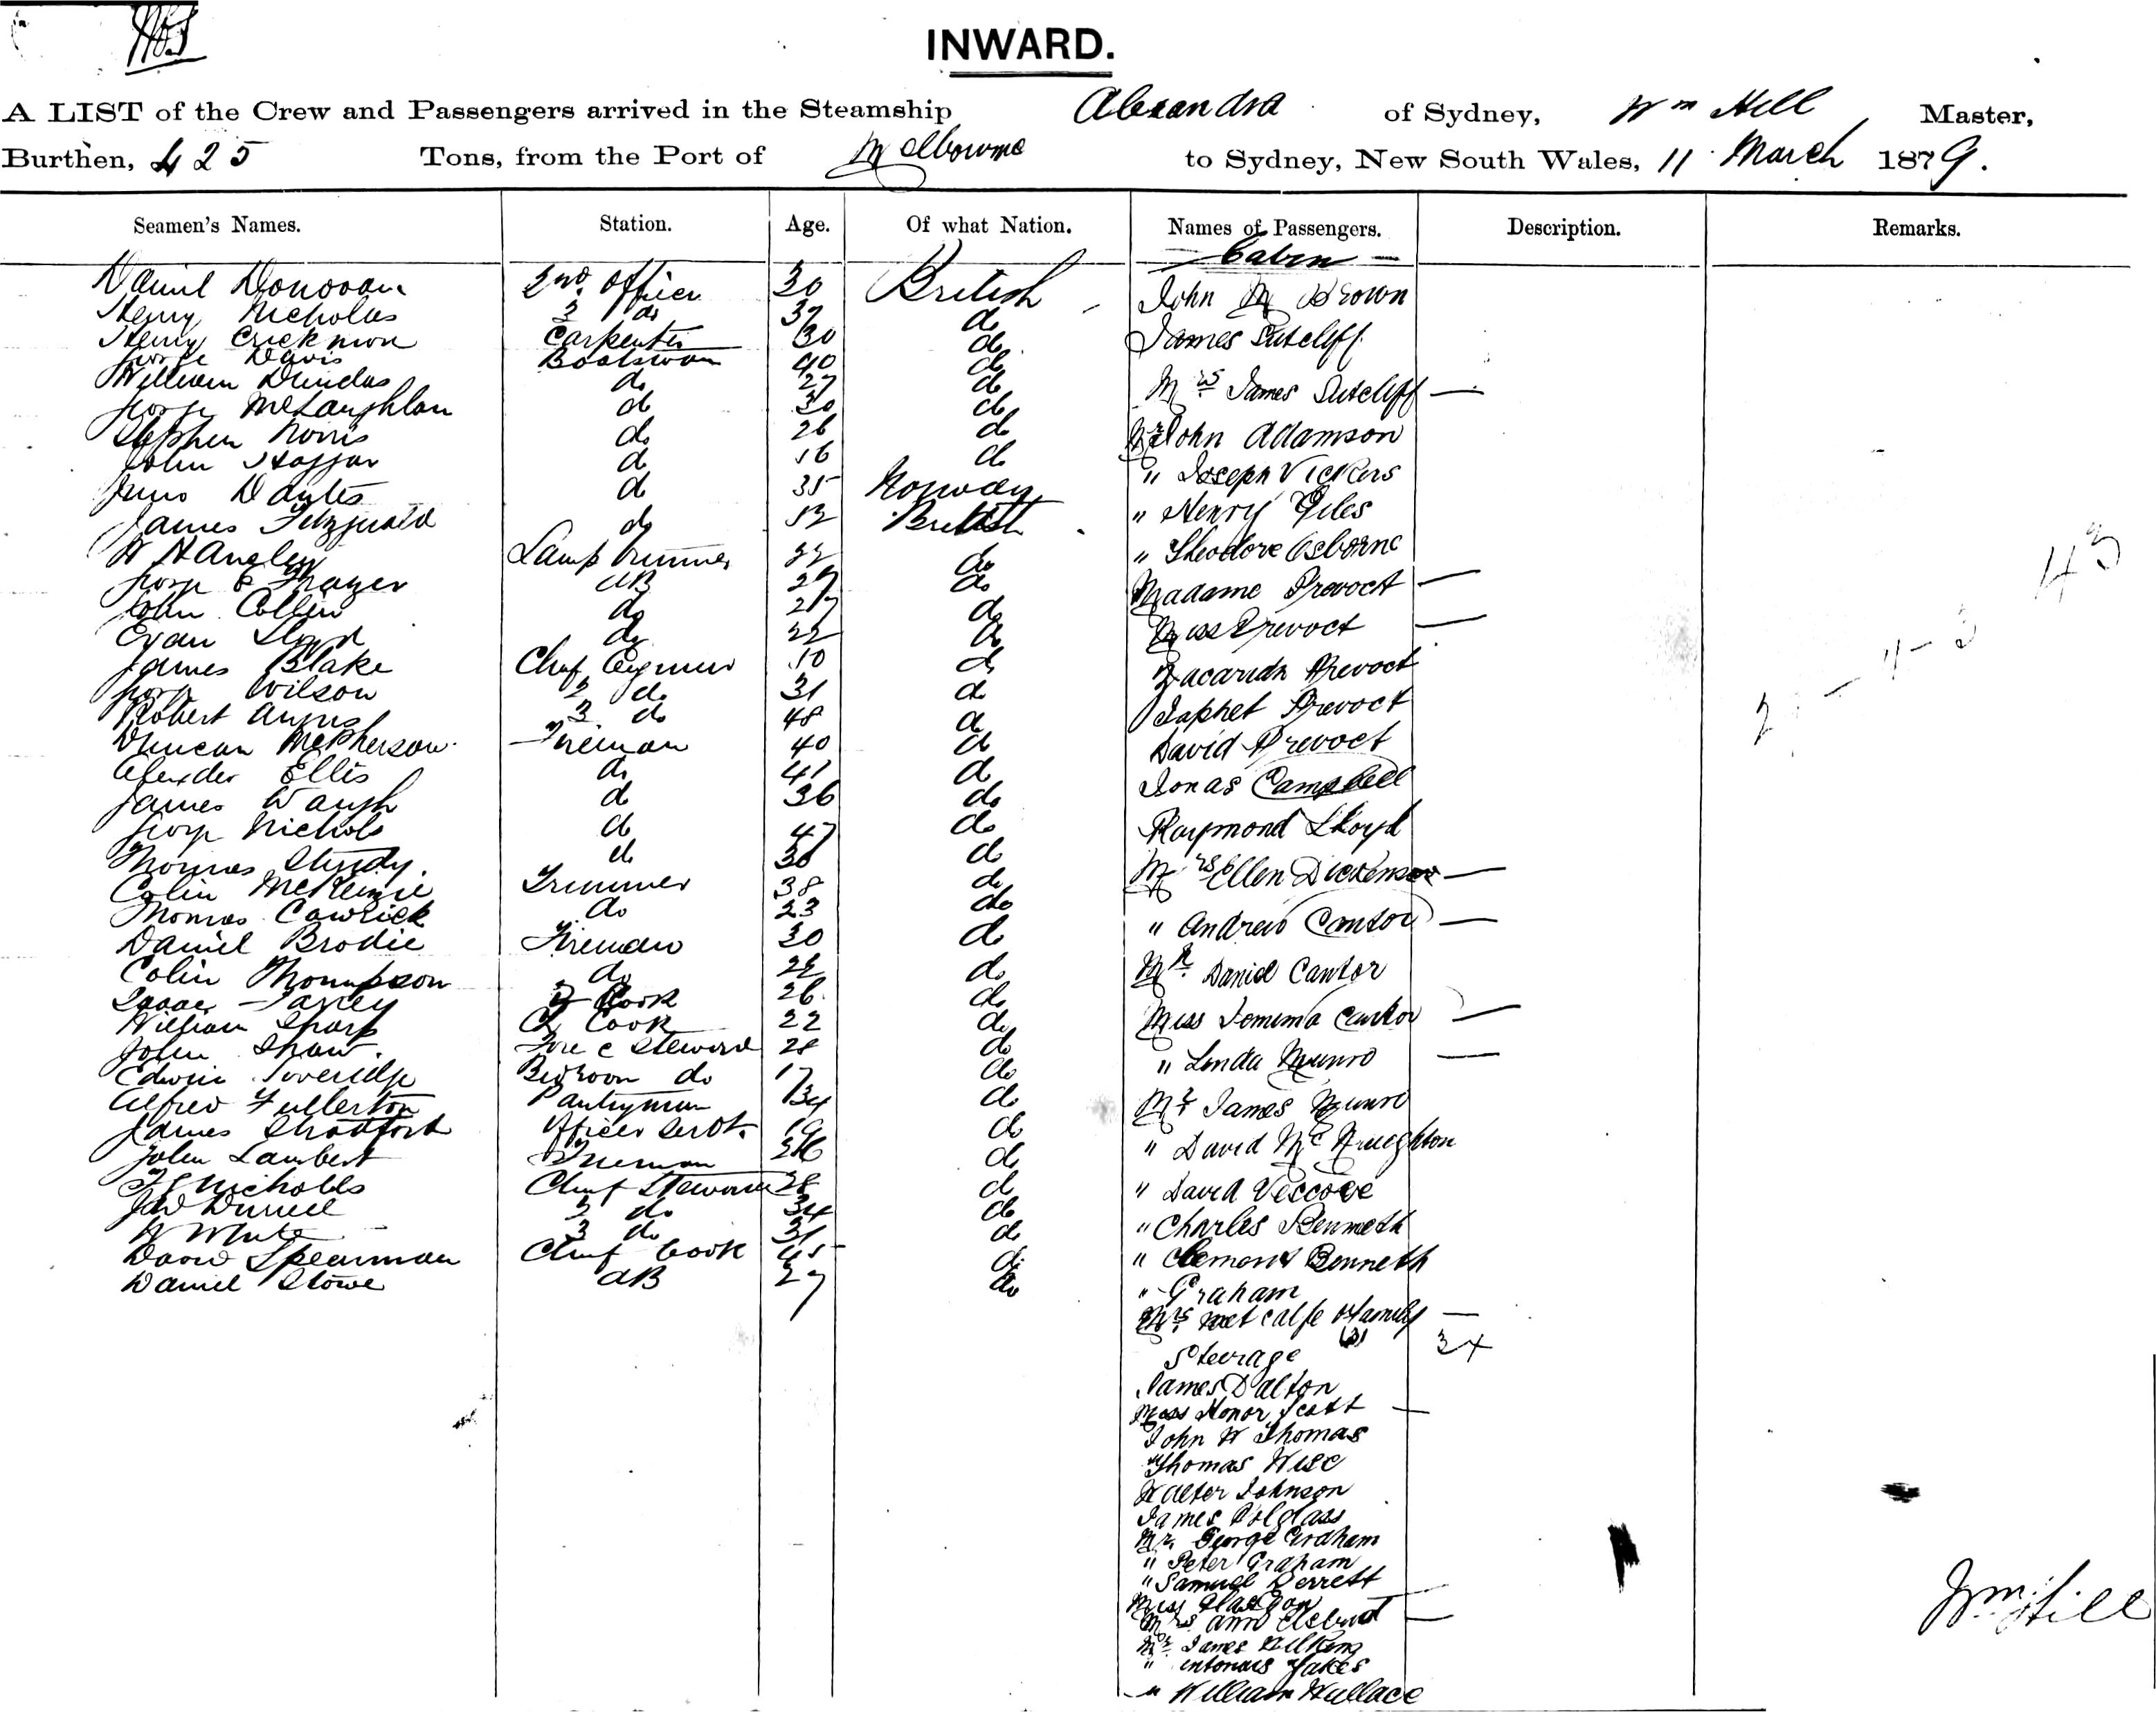 INWARD.
A LIST of the Crew and Passengers arrived in the Steamship Alexandra of Sydney, Wm Hill Master,
Burthen, 425 Tons, from the Port of Melbourne to Sydney, New South Wales, 11 March 1879.
Seamen's Names. Station. Age. Of what Nation. Names of Passengers. Description. Remarks.
Cabin
Daniel Donovan 2nd Officer 30 British John M Brown
Henry Nicholas 3 do 37 do
Henry Erickmon Carpenter 30 do James Sutcliff
George Davis Boatswain 40 do
William Dundas do 27 do Mrs James Sutcliff
George McLaughlan do 30 do
Stephen Norris do 26 do Mr John Adamson
John Haggar do 16 do
do 35 Norway " Joseph Vickers
James Fitzgerald do 52 British " Henry Giles
W Hangley Lamp Trimmer 22 do " Theodore Osborne
George E Thayer AB 27 do Madame Prevoct
John Collin do 27 do
Evan Lloyd do 22 do Miss Prevoct
James Blake Chief Engineer 50 do Zacariah Prevoct
George Wilson 2 do 31 do
Robert Angus 3 do 48 do Japhet Prevoct
Duncan McPherson Fireman 40 do David Prevoct
Alexder Ellis do 41 do Jonas Campbell
James Waugh do 36 do
George Nichols do 47 do Raymond Lloyd
Thomas Study do 36 do
Colin McKenzie Trimmer 38 do Mrs Ellen Dickenson
Thomas Cowrick do 23 do " Andrew Cantor
Daniel Brodie Fireman 30 do
Colin Thompson do 22 do Mr David Cantor
Isaac 3 Cook 26 do
William Sharp 2 Cook 22 do Miss Jemima Cantor
John Shaw Fore C Steward 28 do
Edwin Loveridge Bedroom do 17 do " Linda Munro
Alfred Fullerton Pantryman 34 do Mr James Munro
James Stratford Officer Servt. 19 do " David McNaughton
John Lambert Fireman 26 do
Nicholls Chief Steward 28 do " David Vescove
2 do 34 do " Charles Benneth
W White 3 do 31 do
David Spearman Chief Cook 45 do " Clement Benneth
Daniel Stowe AB 27 do " Graham
Mrs Metcalfe & family (3)
34
Steerage
James Dalton
Miss Honor Scott
John W Thomas
Thomas Wise
Walter Johnson
James Polglass
Mr. George Graham
" Peter Graham
" Samuel Derrett
Miss
Mrs Ann
Mr James Wilkins
" Yakes
" William Wallace
43
2 - 11 - 3
Wm Hill